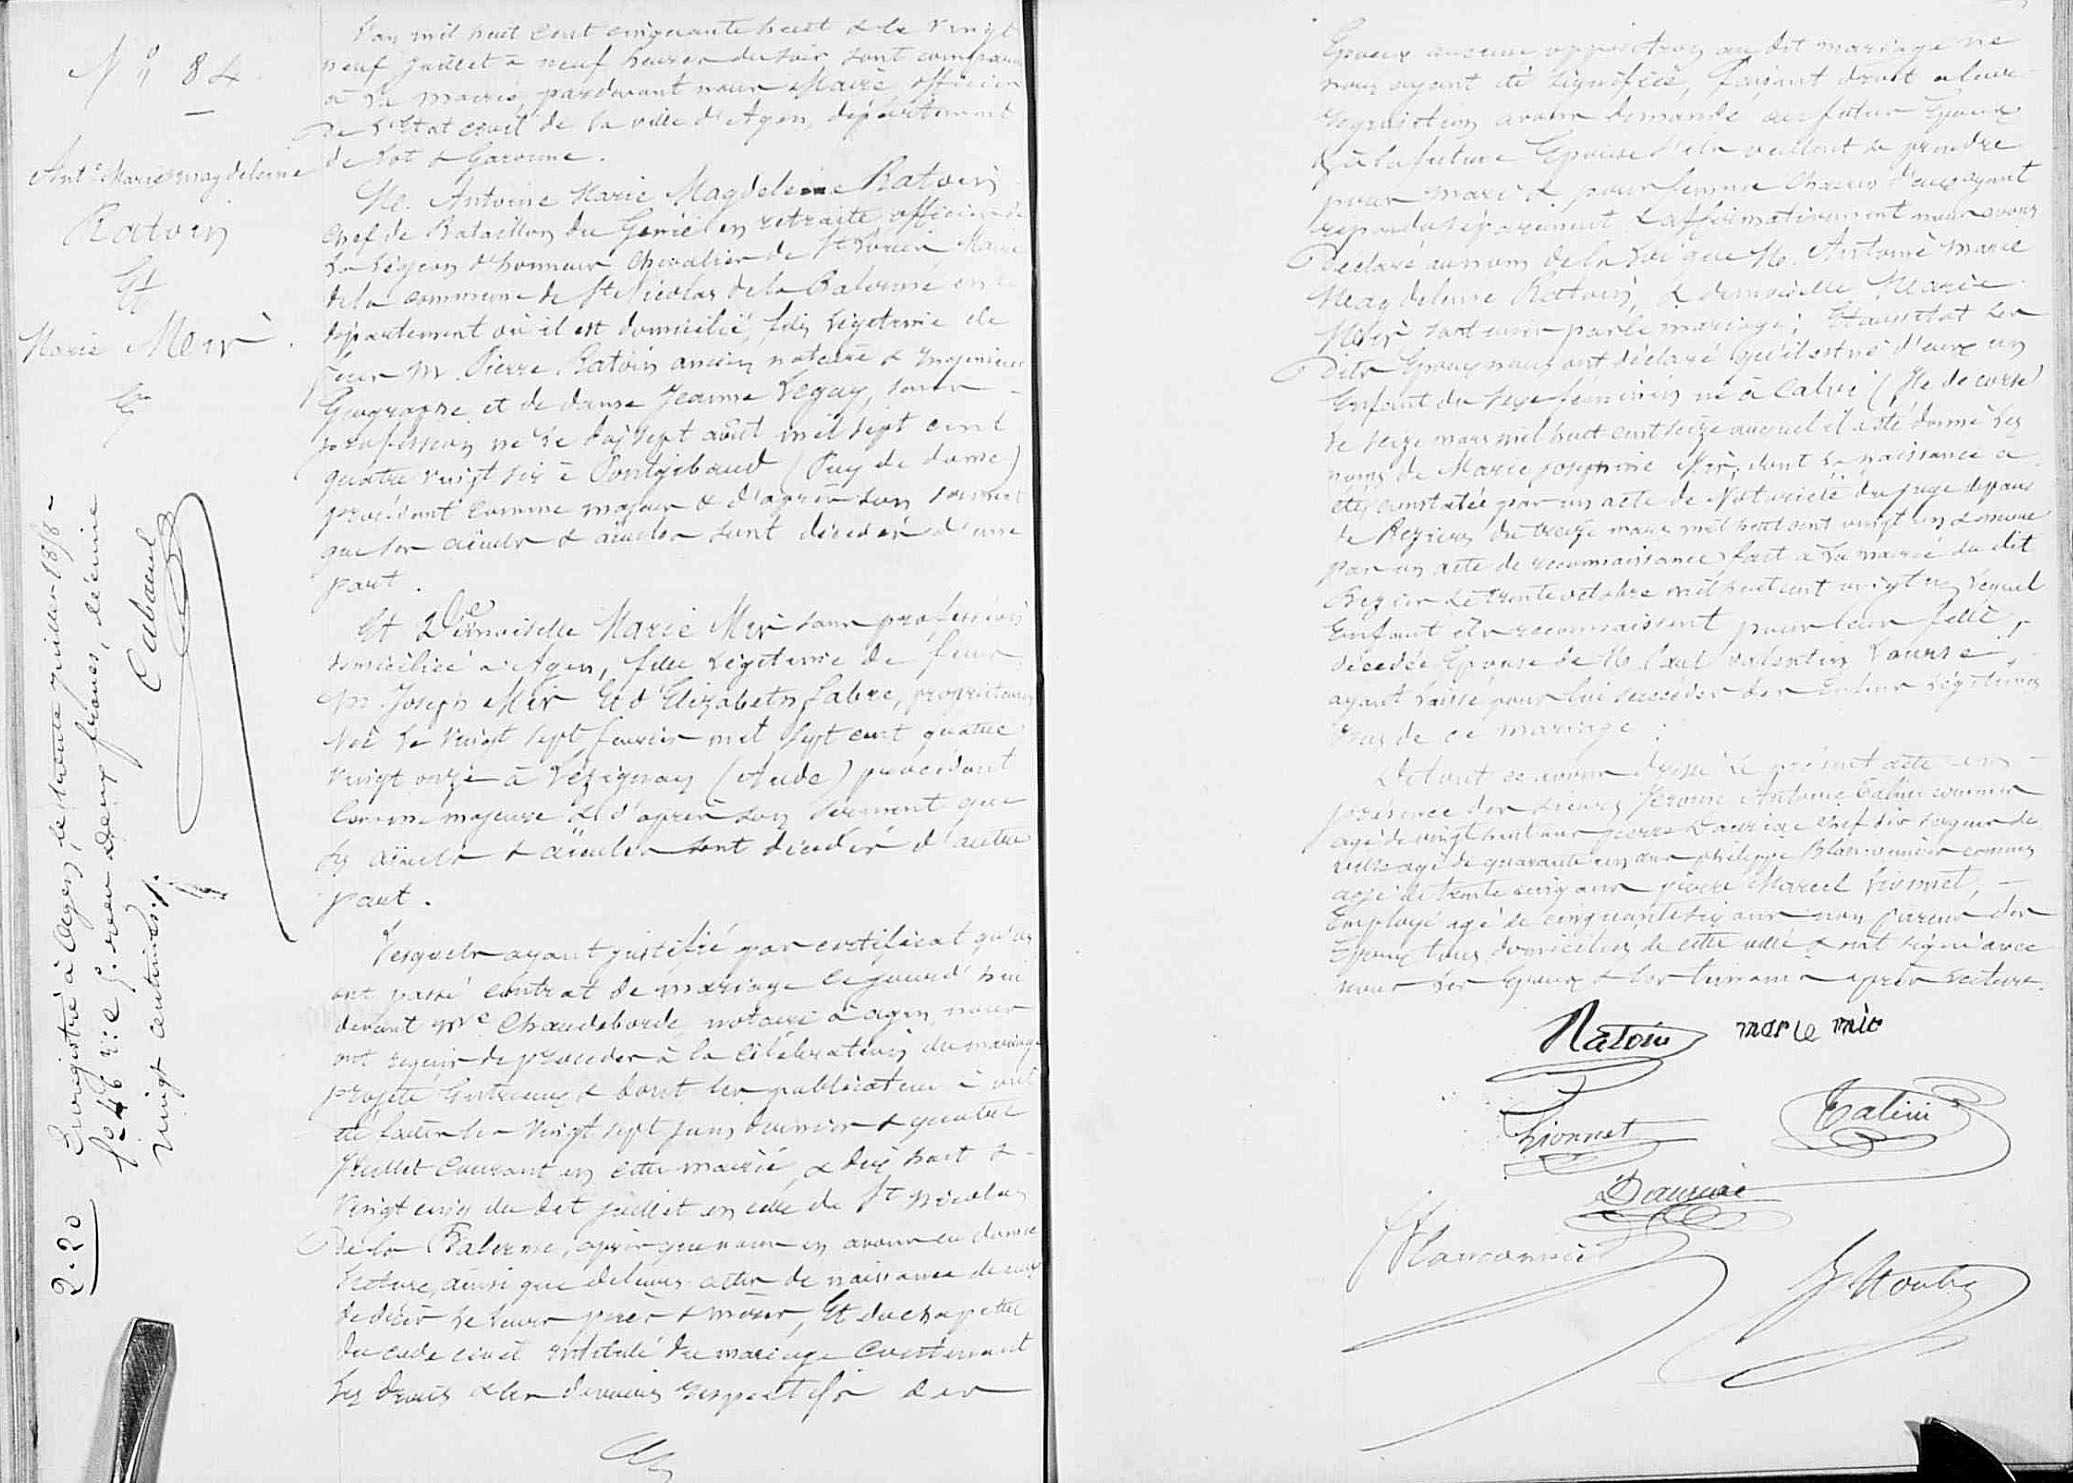 N° 84
Ant.e Marie magdeleine
Ratoin
Et
Marie Mir
Enregistré à Agen, le trente juillet 1858
f° 46 r. c. 5. reçu deux francs, décime
vingt centimes
Cabanel
2.20
L'an mil huit cent cinquante huit & le vingt
neuf juillet à neuf heures du soir sont comparus
à la mairie, pardevant nous Maire, officier
de L'Etat civil de la ville d'Agen, département
de Lot & Garonne.
M. Antoine Marie Magdeleine Ratoin
chef de Bataillon du Génie en retraite officier de
La Légion d'honneur Chevalier de St Louis Maire
de la commune de St Nicolas de la Balerme en ce
département où il est domicilié, fils Légitime de
feux M. Pierre Ratoin ancien notaire & Ingénieur
Géographe et de dame Jeanne Legay, sans
profession né le dix sept août mil sept cent
quatre vingt six à Pontgibaud (Puy de dome)
procédant comme majeur & d'après son serment
que ses aïeuls & aïeules sont décédés d'une
part.
Et Demoiselle Marie Mir sans profession
domiciliée à Agen, fille Légitime de feux
M. Joseph Mir Et d'Elizabeth Fabre, propriétaires
Née le vingt sept février mil sept cent quatre
vingt onze à Lézignan (Aude) procédant
comme majeure & d'après son serment que
ses aïeuls & aïeules sont décédés d'autre
part.
Lesquels ayant justifié par certificat qu'ils
ont passé contrat de mariage ce jourd'hui
devant Me Chaudeborde, notaire à agen, nous
ont requis de procéder à la célébration du mariage
projeté Entr'eux & dont les publications ont
été faites les vingt sept juin dernier & quatre
Juillet courant en cette mairie, & dix huit &
vingt cinq du dit juillet en celle de St Nicolas
de la Balerme, après que nous en avons eu donné
lecture, ainsi que de leurs actes de naissance de ceux
de décès de leurs pères & mères, Et du chapitre
du code civil intitulé du mariage Contenant
Les droits & les devoirs respectifs des
Epoux aucune opposition au dit mariage ne
nous ayant été signifiée, faisant droit à leur
réquisition avons demandé au futur Epoux
& à la future Epouse s'ils veulent se prendre
pour mari & pour femme chacun d'eux ayant
répondu séparément & affirmativement nous avons
Déclaré au nom de la Loi que M. Antoine Marie
Magdeleine Ratoin, & demoiselle Marie
Mir sont unis par le mariage; Et aussitot les
Dits Epoux nous ont déclaré qu'il est né d'eux un
Enfant du sexe féminin né à Calvi (Ile de corse)
le seize mars mil huit cent seize auquel il a été donné les
noms de Marie Josephine Mir, dont la naissance a
été constatée par un acte de Notoriété du juge de paix
de Beziers du treize mars mil huit cent vingt un & même
par un acte de reconnaissance fait à la mairie du dit
Bezier le trente octobre mil huit cent vingt un Lequel
Enfant ils reconnaissent pour leur fille,
décédée Epouse de M. Paul Valentin
ayant laissé pour lui succéder des Enfans Légitimes
issus de ce mariage.
De tout ce avons dressé le présent acte en
présence des sieurs Jerome Antoine Talini commis
agé de vingt huit ans pierre Dauriac chef des sergens de
ville agé de quarante un ans philippe Blanconnier commis
agé de trente cinq ans pierre Marcel Lionnet,
Employé agé de cinquante six ans non parens des
Epoux tous domiciliés de cette ville & ont signé avec
nous Les Epoux & les témoins après lecture.
Ratoin marie mir
Lionnet Talini
Dauriac
Blanconnier